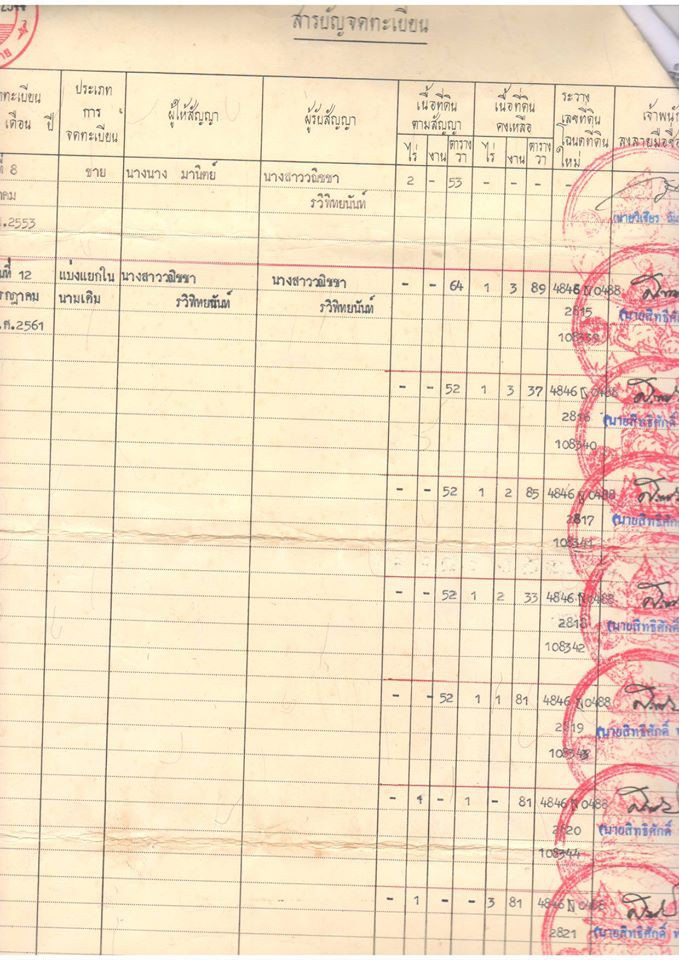 สารบัญจดทะเบียน
ทะเบียน
เดือน ปี
ประเภท
การ
จดทะเบียน
ผู้ให้สัญญา
ผู้รับสัญญา
เนื้อที่ดิน
ตามสัญญา
ไร่ งาน ตาราง
วา
เนื้อที่ดิน
คงเหลือ
ไร่ งาน ตาราง
วา
ระวาง
เลขที่ดิน
โฉนดที่ดิน
ใหม่
เจ้าพนั
ลงลายมือชื่อ
ที่ 8 ขาย นางนาง มานิตย์ นางสาววณิชชา 2 - 53 - - - -
าคม รวิพิทยนันท์
.2553 (นายวิเชียร
นที่ 12 แบ่งแยกใน นางสาววณิชชา นางสาววณิชชา - - 64 1 3 89 4846 IV 0488
รกฎาคม นามเดิม รวิพิทยนันท์ รวิพิทยนันท์ 2815 (นายสิทธิศักดิ์
.ศ.2561 108339
- - 52 1 3 37 4846 IV 0488
2816 (นายสิทธิศักดิ์
108340
- - 52 1 2 85 4846 IV 0488
2817 (นายสิทธิศักดิ์
108341
- - 52 1 2 33 4846 IV 0488
2818 (นายสิทธิศักดิ์
108342
- - 52 1 1 81 4846 IV 0488
2819 (นายสิทธิศักดิ์
108343
- 1 - 1 - 81 4846 IV 0488
2820 (นายสิทธิศักดิ์
108344
- 1 - - 3 81 4846 IV 0488
2821 (นายสิทธิศักดิ์